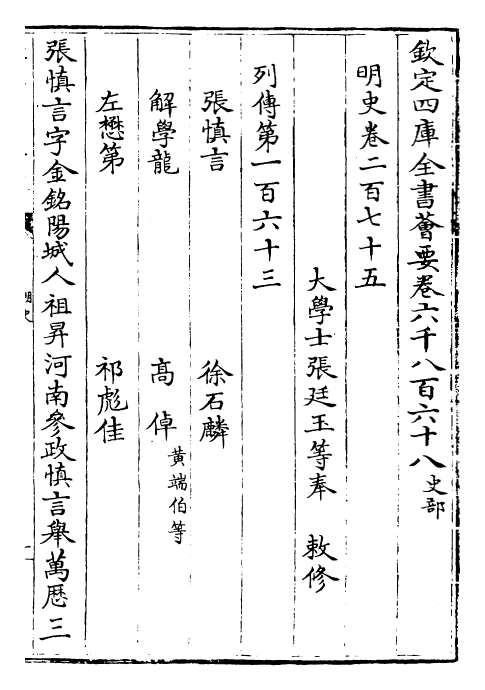 欽定四庫全書薈要卷六千八百六十八史部
明史卷二百七十五
大學士張廷玉等奉 敕修
列傳第一百六十三
張慎言 徐石麟
解學龍 高倬黃端伯等
左懋第 祁彪佳
張慎言字金銘陽城人祖昇河南參政慎言舉萬厯三
明史